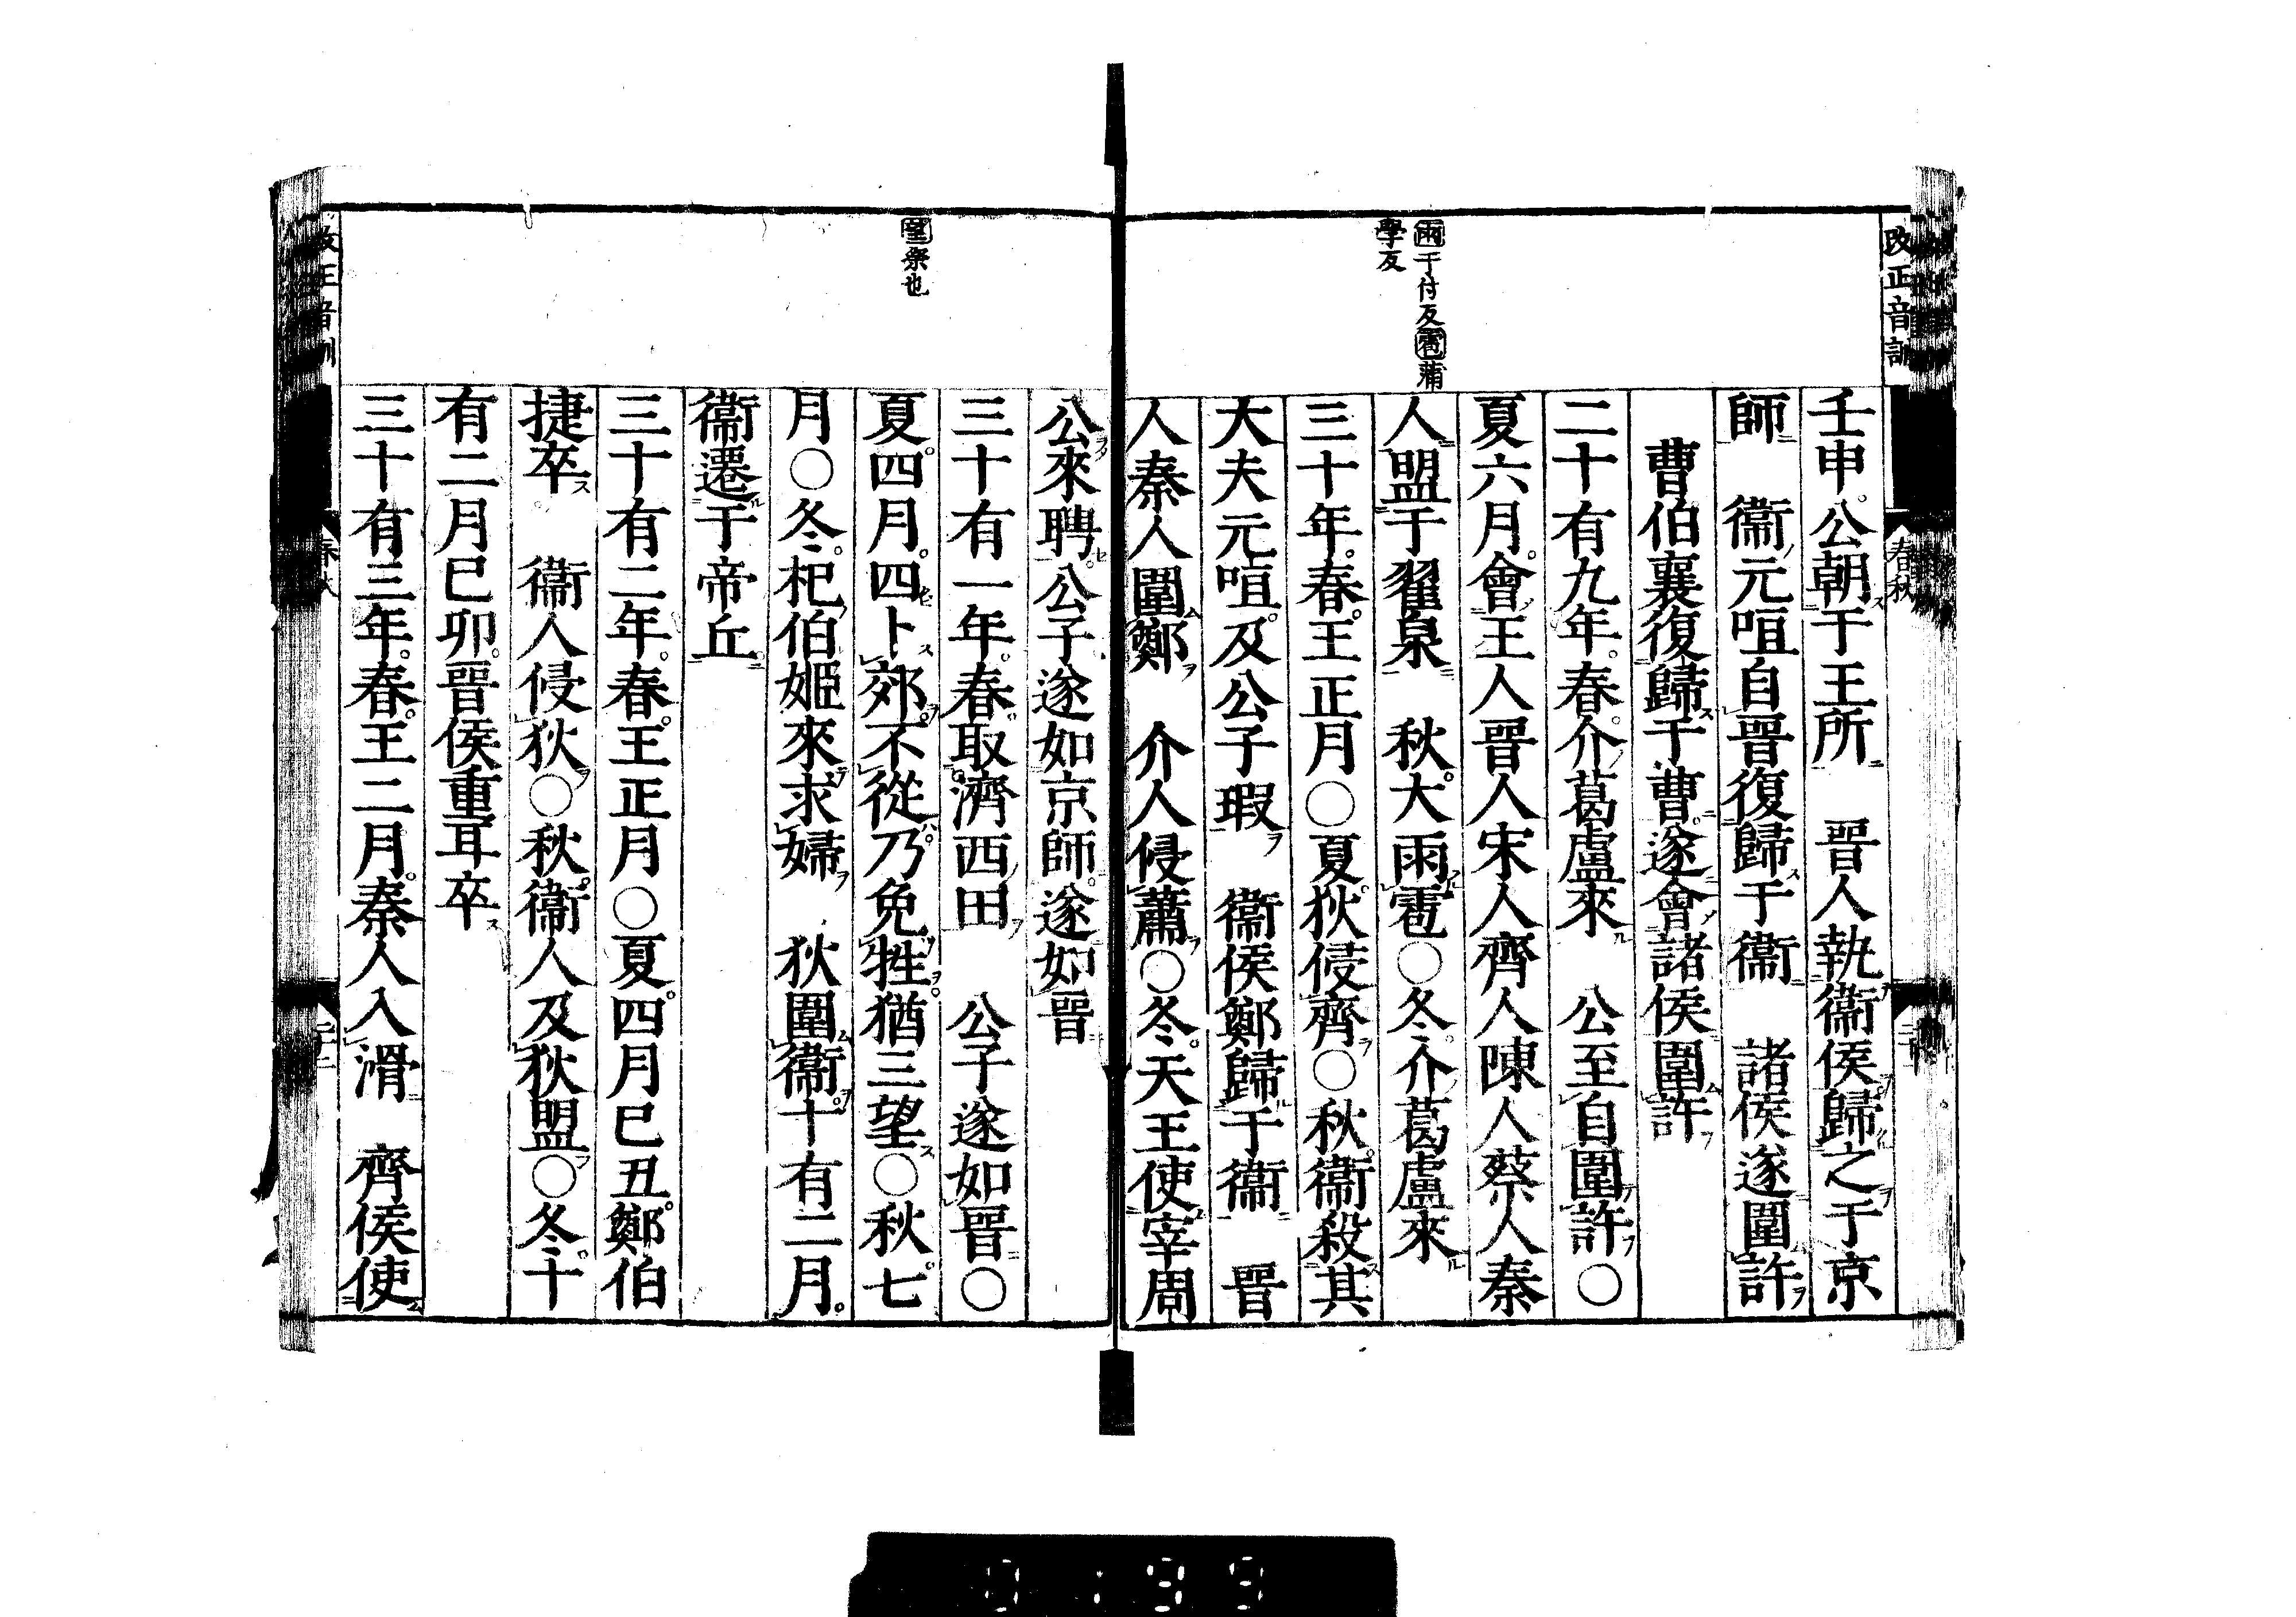 改正音訓
春秋
雨于付反雹蒲
學反
壬申公朝于王所　晉人執衞侯歸之于京
師　衞元咺自晉復歸于衞　諸侯遂圍許
曹伯襄復歸于曹遂會諸侯圍許
二十有九年春介葛盧來　公至自圍許〇
夏六月會王人晉人宋人齊人陳人蔡人秦
人盟于翟泉　秋大雨雹〇冬介葛盧來
三十年春王正月〇夏狄侵齊〇秋衞殺其
大夫元咺及公子瑕　衞侯鄭歸于衞　晉
人秦人圍鄭　介人侵蕭〇冬天王使宰周
望祭也
公來聘公子遂如京師遂如晉
三十有一年春取濟西田　公子遂如晉〇
夏四月四卜郊不從乃免牲猶三望〇秋七
月〇冬杞伯姬來求婦　狄圍衞十有二月
衞遷于帝丘
三十有二年春王正月〇夏四月己丑鄭伯
捷卒　衞人侵狄〇秋衞人及狄盟〇冬十
有二月己卯晉侯重耳卒
三十有三年春王二月秦人入滑　齊侯使
改正音訓
春秋
0199